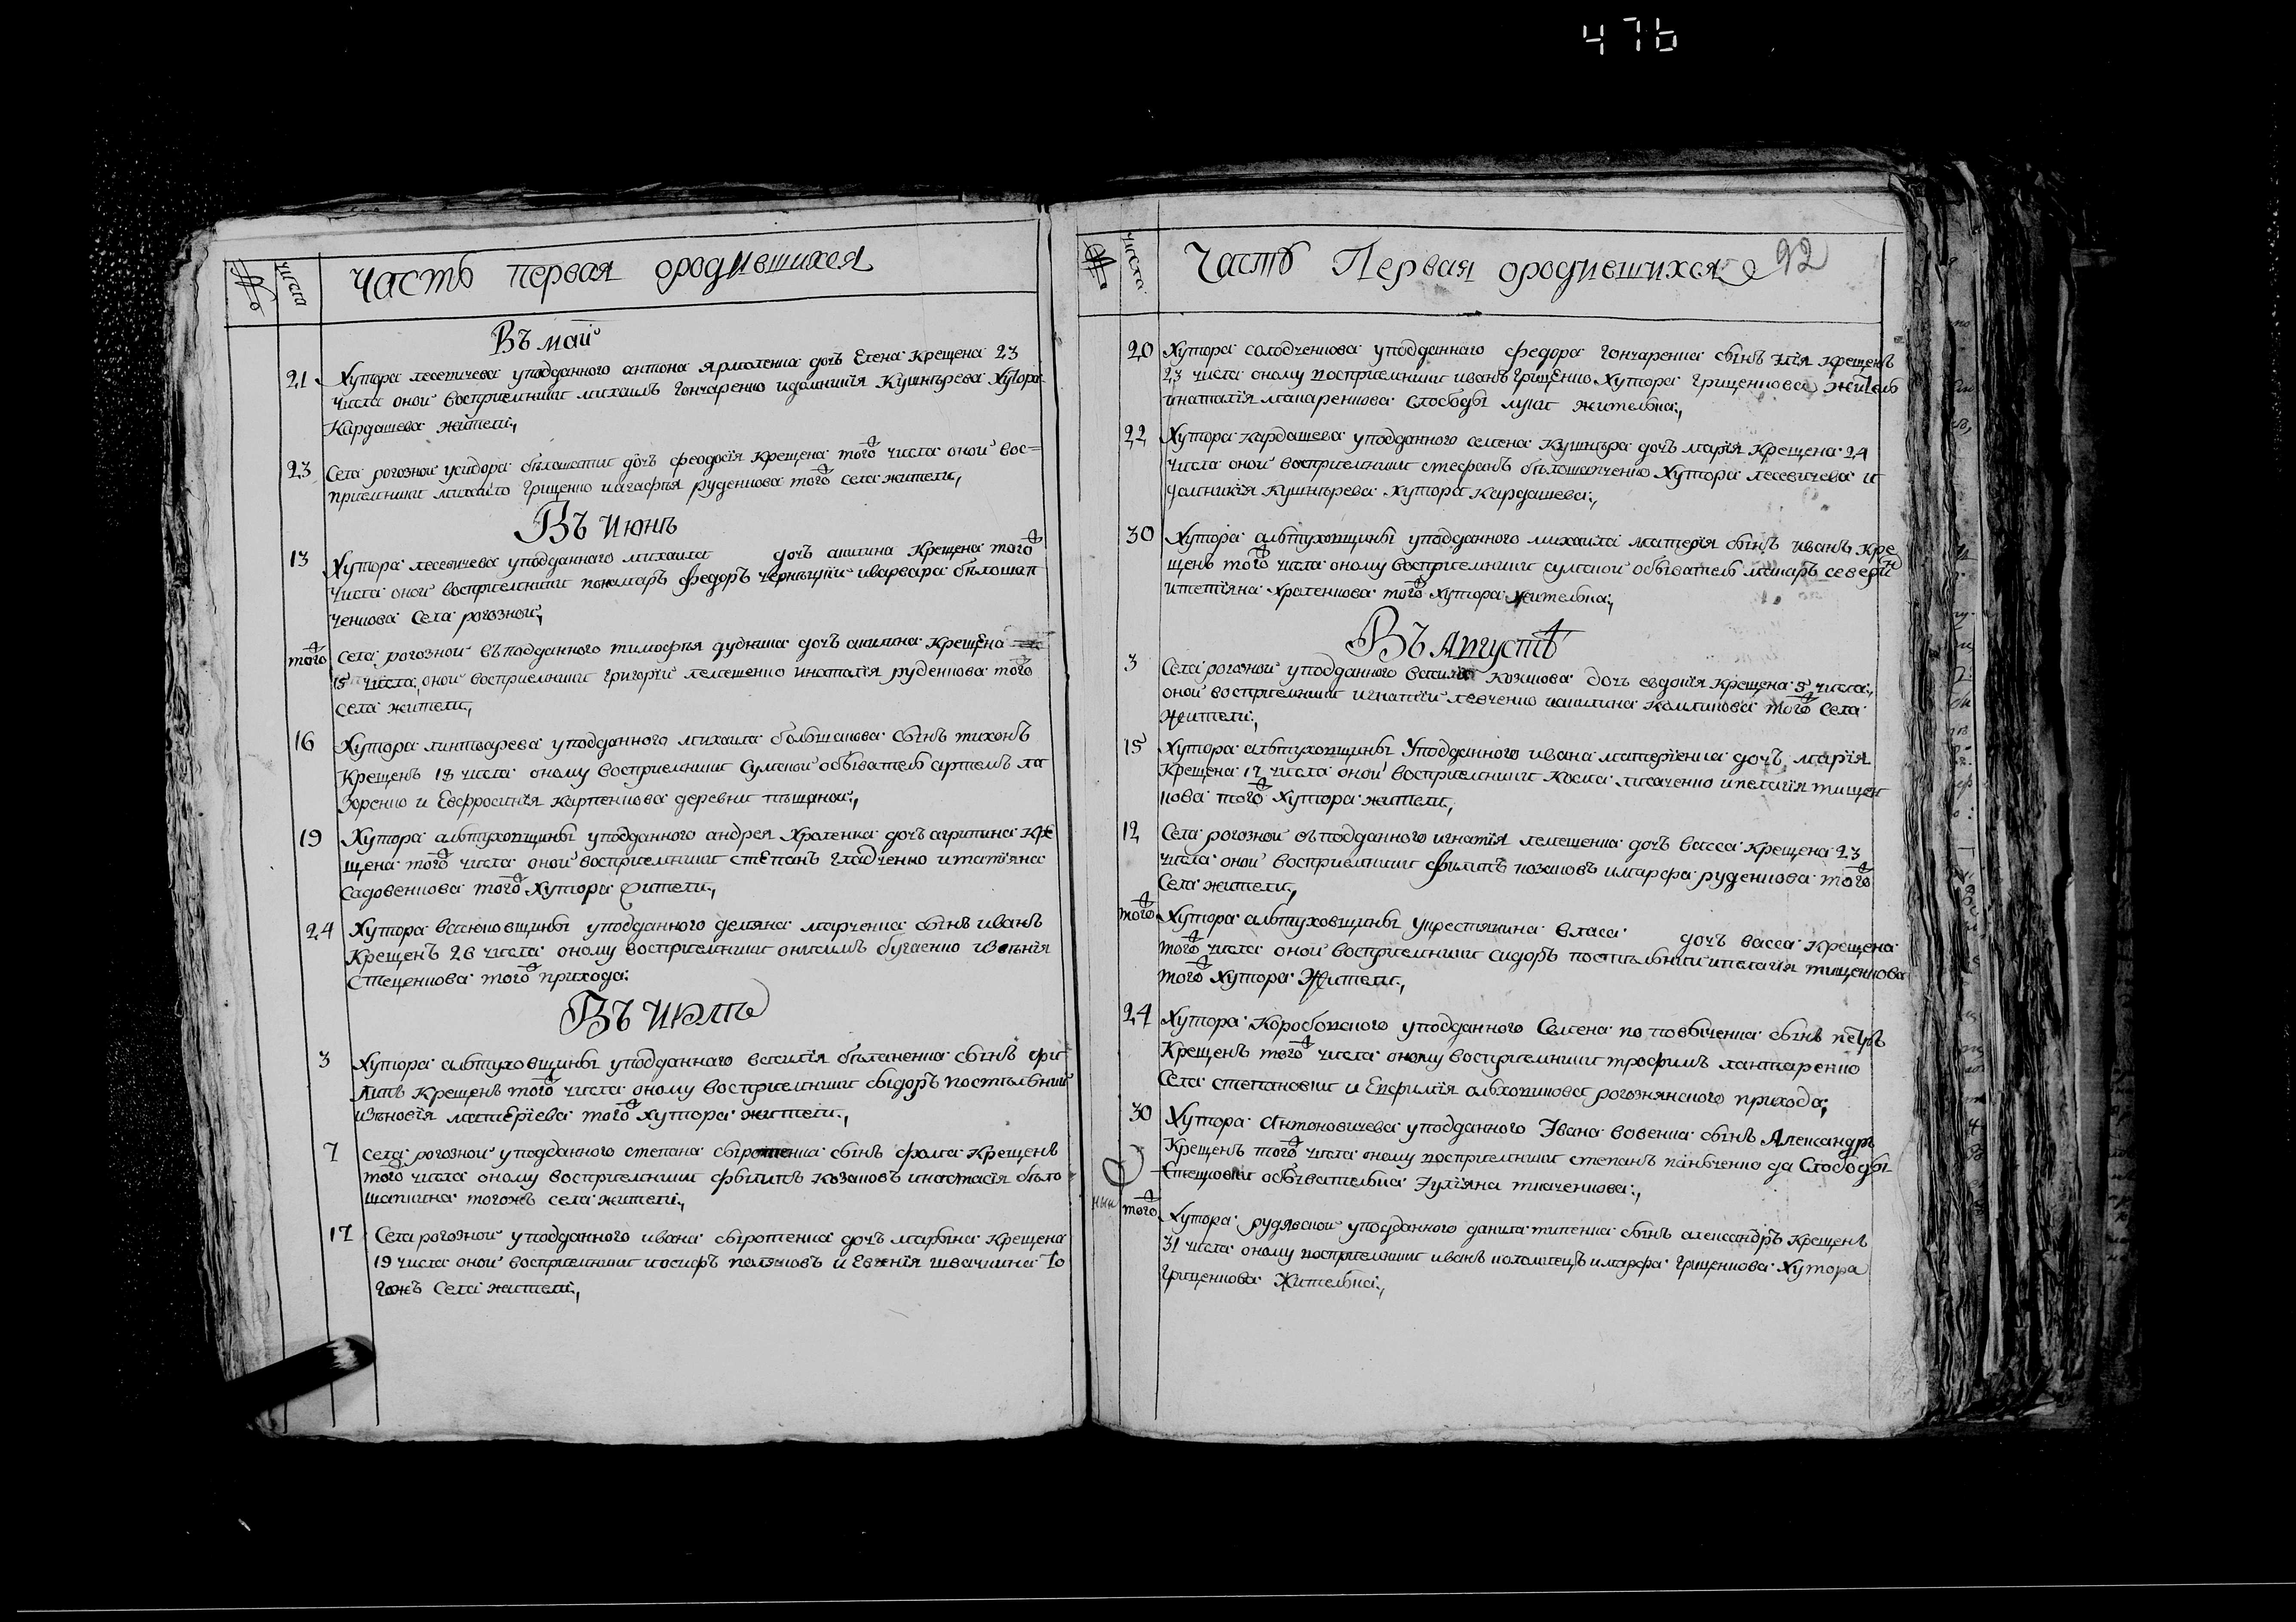 476
№ числа Часть первая ородившихся
Въ маїи
21 Хутора лесевичева уподданного антона ярмоленка дочъ Елена крещена 23
числа оной восприемники михаилъ гончаренко идомникїя кушнѣрева хутора
Кардашева жители,
23 Села рогозной уисидора бѣлошапки дочъ феодосїя крещена того числа оной вос=
приемники михайло грищенко иагафїя руденкова того села жители,
Въ июнѣ
13 Хутора лесевичева уподданнаго михаила дочъ акилина крещена того
числа оной восприемники пономаръ федоръ чернѣцкїй иварвара бѣлошап
ченкова села рогозной,
того села рогозной въподданного тимофѣя дудника дочъ акилина крещена
15 числа, оной восприемники григорїй лемешенко инаталїя руденкова того
села жители,
16 Хутора линтварева уподданного михаила большакова сынъ тихонъ
крещенъ 18 числа оному восприемники сумской обыватель артемъ ла
зоренко и Евфросинїя карпенкова деревни пѣщаной,
19 Хутора алтуховщины уподданного андрея храленка дочъ агрипина кре
щена того числа оной восприемники стЕпанъ гладченко итатїяна
садовенкова того хутора жители,
24 Хутора васюковщины уподданного демяна марченка сынъ иванъ
крещенъ 26 числа оному восприемники онисимъ бугаенко
стеценкова того прихода:
Въ июлѣ
3 Хутора алтуховщины уподданнаго василїя бѣланенка сынъ фи
липъ крещенъ того числа оному восприемники сыдоръ постѣльний
матЕрїева того хутора жители,
7 села рогозной уподданного степана сыротенка сынъ фома крещенъ
того числа оному восприемники филипъ козаковъ инастасїя бѣло
шапкина тогожъ села жители,
17 Села рогозной уподданного ивана сыротенка дочъ марѣна крещена
19 числа оной восприемники иосифъ поляковъ и Евгенїя швачкина то
гожъ села жители,
№ числа Часть Первая ородившихся 92
20 Хутора солодченкова уподданнаго федора гончаренка сынъ илїя крещенъ
23 числа оному восприемники иванъ грищЕнко хутора грищенкова житель
инаталїя макаренкова слободы луки жителька,
22 Хутора кардашева уподданного семена кушнѣра дочъ марїя крещена 24
числа оной восприемники стефанъ бѣлошапченко хутора лесевичева и
домникїя кушнѣрева хутора кардашева,
30 Хутора алтуховщины уподданного михаила матерїя сынъ иванъ кре
щенъ того числа оному восприемники сумской обыватель макаръ северин
итетїяна храленкова того хутора жителька,
Въ Августѣ
3 Села рогозной уподданного василя кожкова дочъ евдокїя крещена 5 числа,
оной восприемники игнатїй левченко иакилина комликова того села
жители,
15 Хутора алтуховщины уподданного ивана матерїенка дочъ марїя
крещена 17 числа оной восприемники косма лисаченко ипелагїя тищен
кова того хутора жители,
12 Села рогозной въподданного игнатїя лемешенка дочъ васса крещена 23
числа оной восприемники филипъ козаковъ имарфа руденкова того
села жители,
того Хутора алтуховщины укрестянина власа дочъ васса крещена
того числа оной восприемники сидоръ постѣльний ипелагїя тищенкова
того хутора Жители,
24 Хутора коробовского уподданного Семена сынъ петръ
крещенъ того числа оному восприемники трофимъ
села степановки и Евфимїя рогознянского прихода,
30 Хутора Антоновичева уподданного Ивана вовенка сынъ Александръ
крещенъ того числа оному восприемники степанъ панченко да слободы
стецковки обывателька Зулїяна ткаченкова,
того Хутора рудявской уподданного данила типенка сынъ александръ крещенъ
31 числа оному восприемники иванъ коломиецъ имарфа грищенкова хутора
грищенкова Жителька,